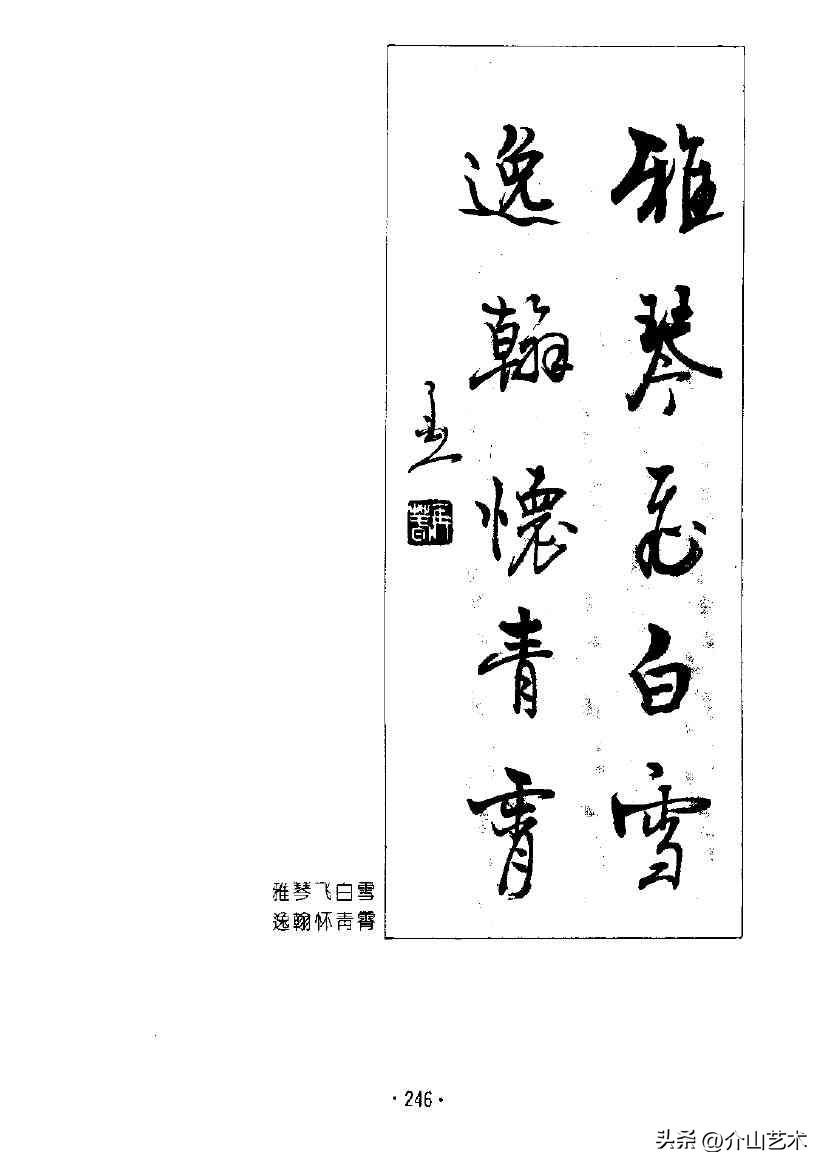 雅琴飞白雪
逸翰懷青霄
雅琴飞白雪
逸翰怀青霄
·246·
头条 @介山艺术